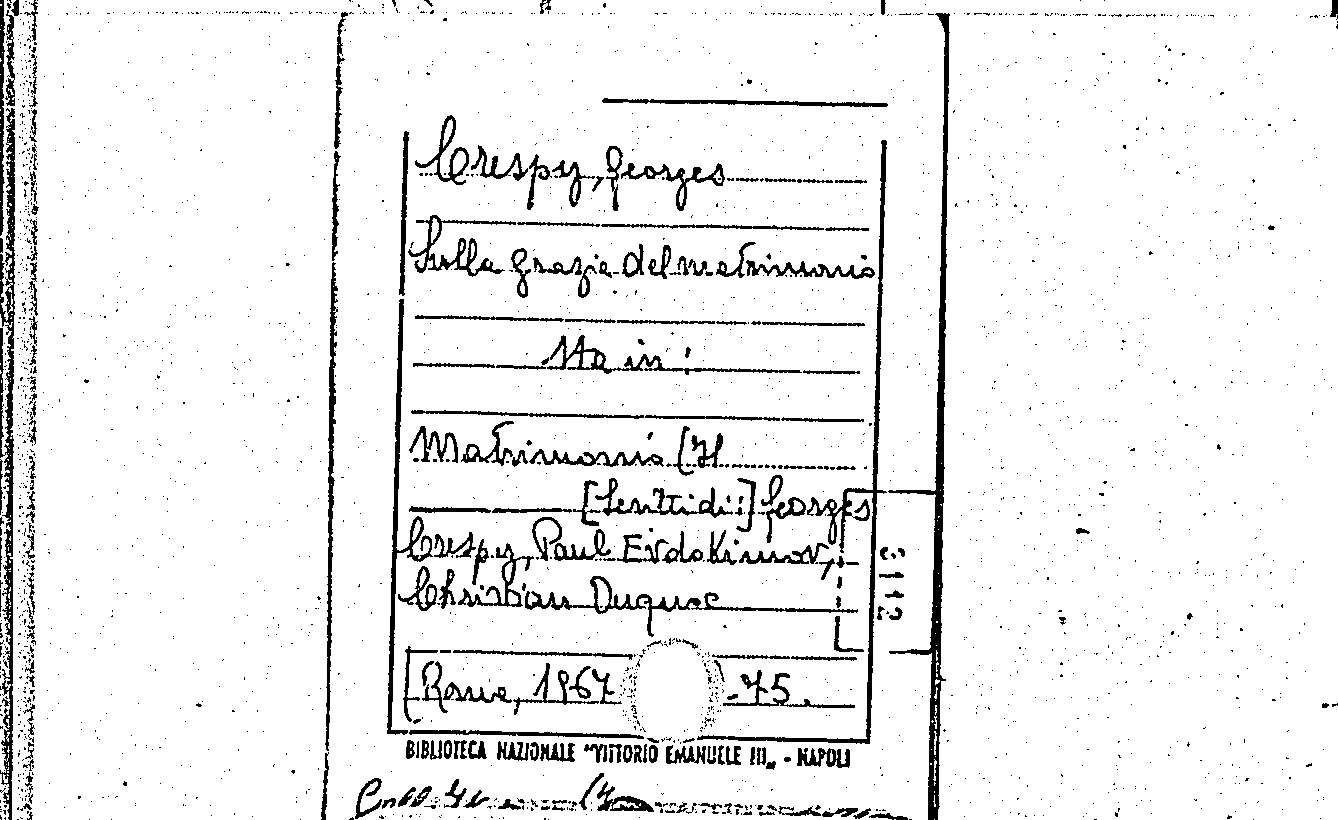 Crespy, Georges
Sulla grazia del matrimonio
Sta in:
Matrimonio (Il
[Scritti di:] Georges
Crespy, Paul Evdokimov,
Christian Duquoc
[Roma, 1967 -75.
3112
BIBLIOTECA NAZIONALE "VITTORIO EMANUELE III„ - NAPOLI